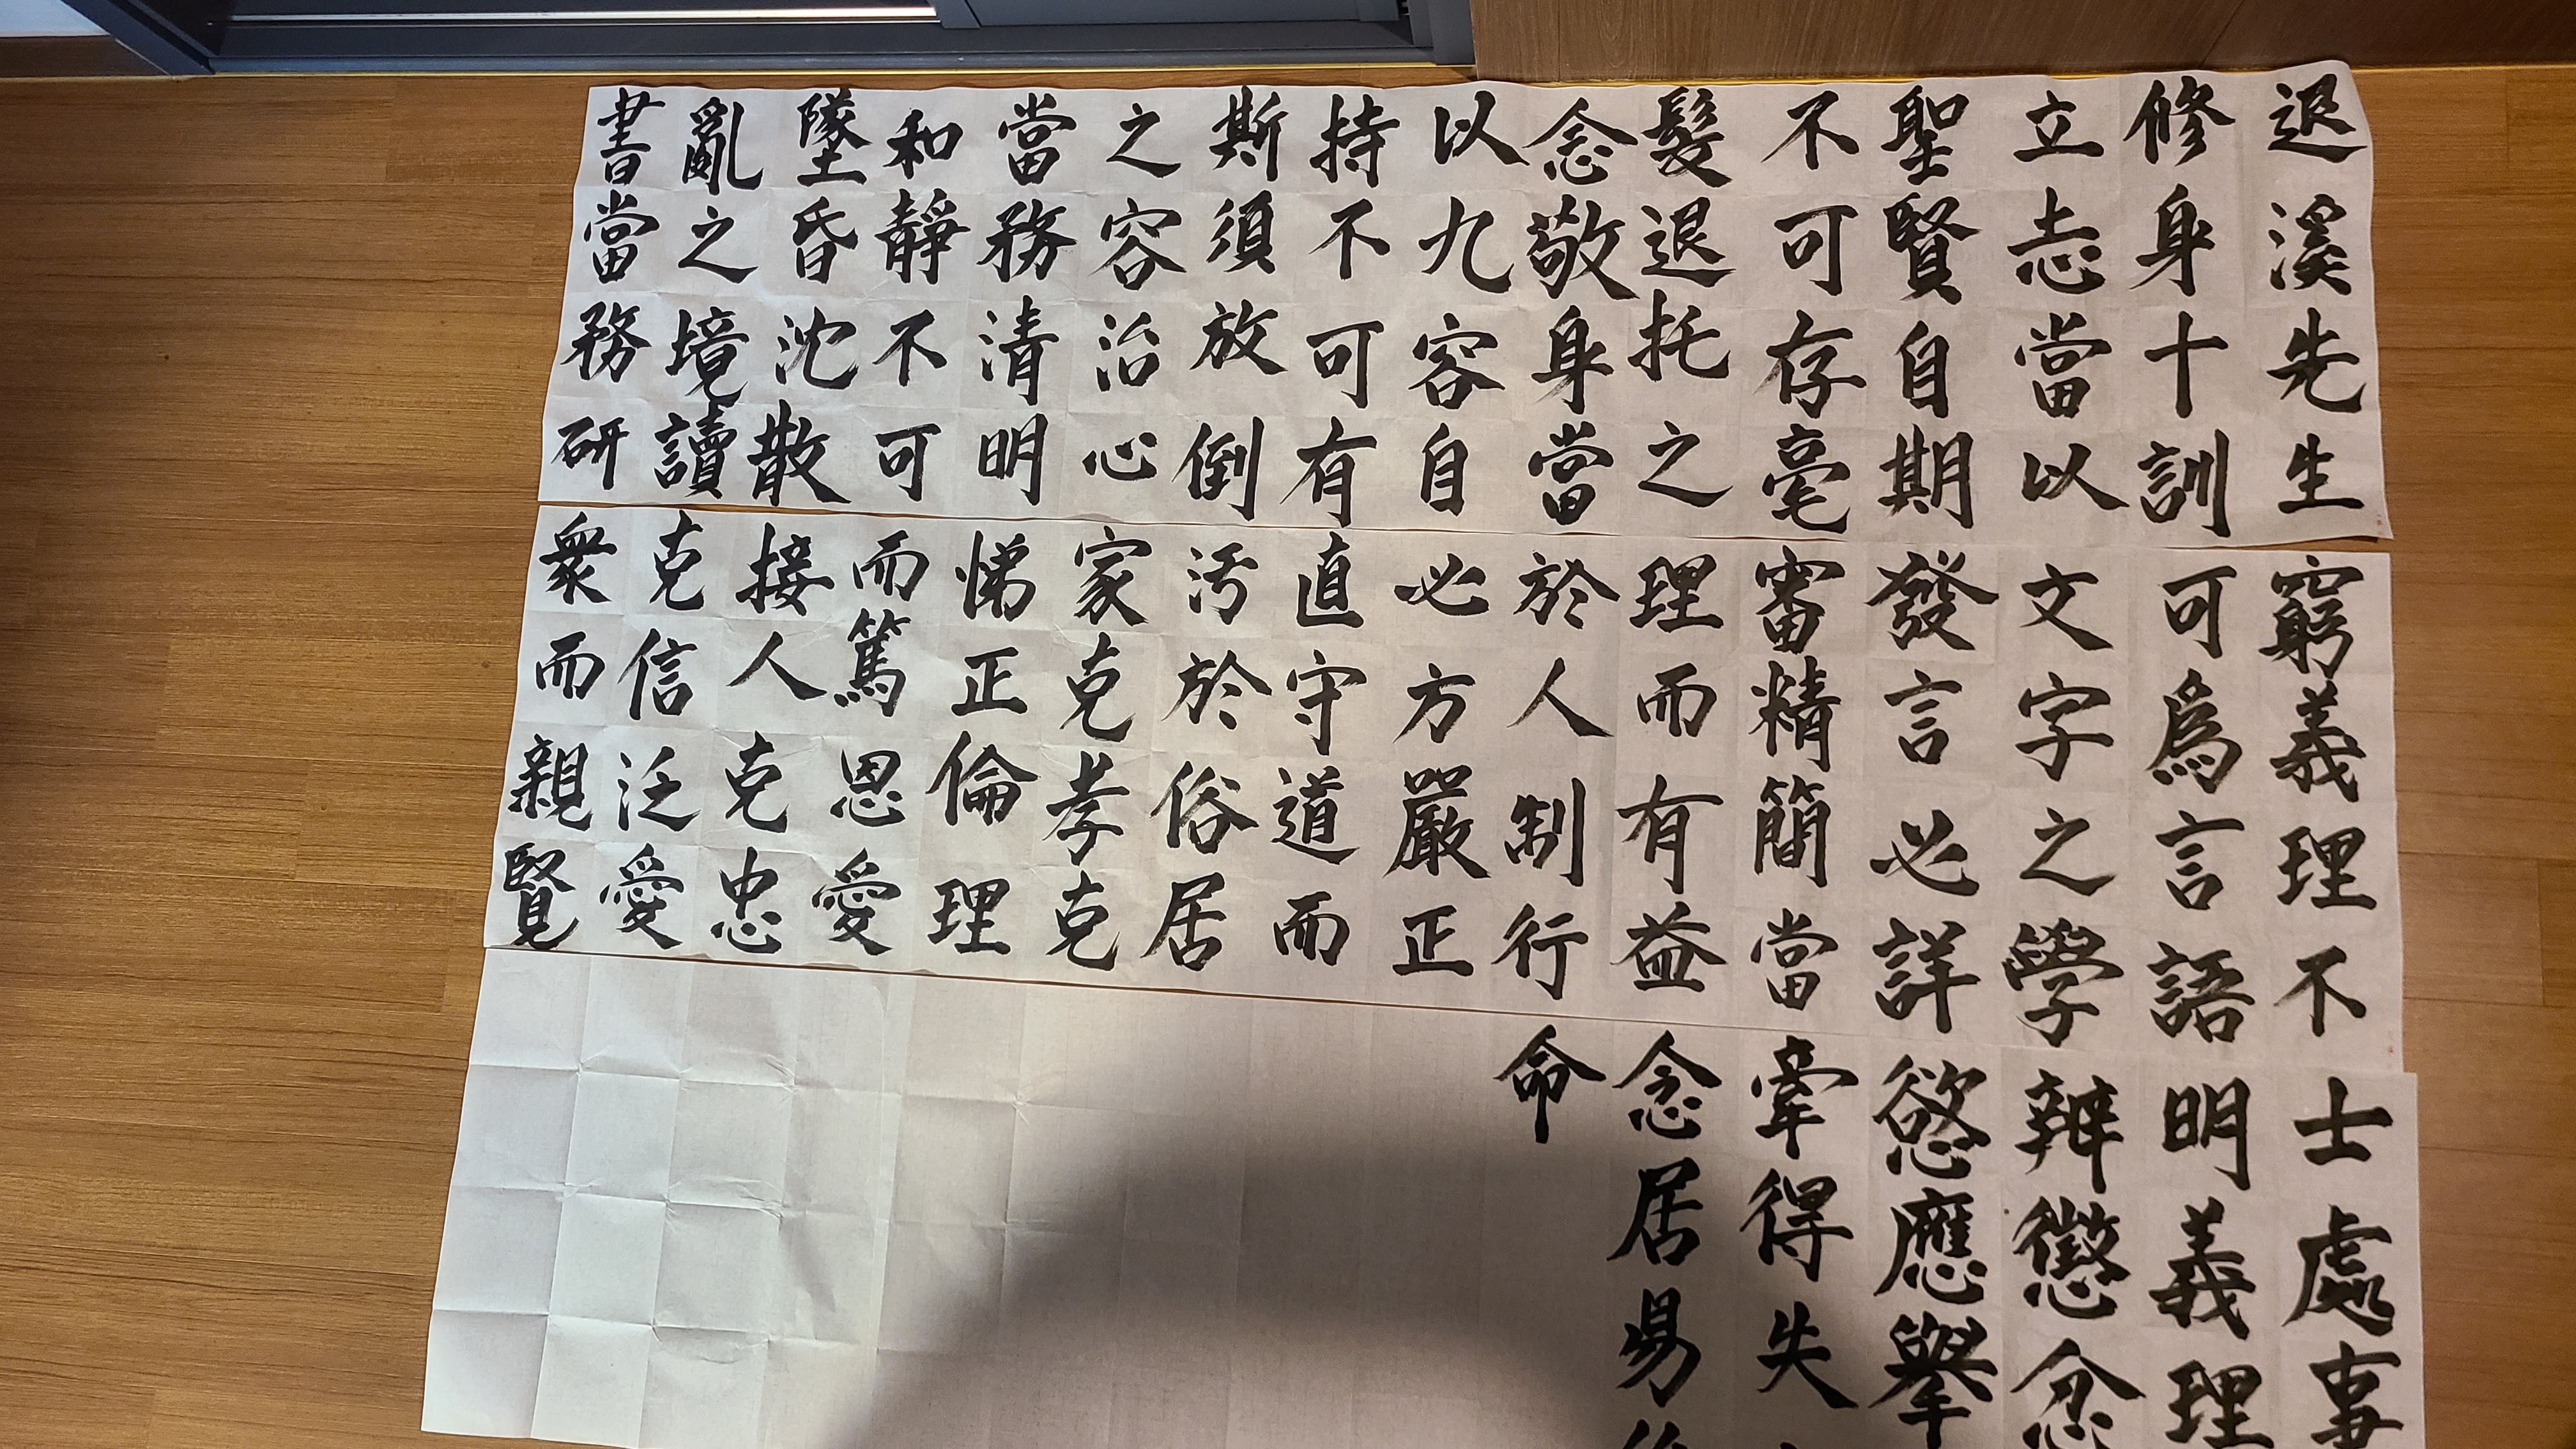 退溪先生
修身十訓
立志當以
聖賢自期
不可存毫
髮退托之
念敬身當
以九容自
持不可有
斯須放倒
之容治心
當務清明
和靜不可
墜昏沈散
亂之境讀
書當務研
窮義理不
可爲言語
文字之學
發言必詳
審精簡當
理而有益
於人制行
必方嚴正
直守道而
汚於俗居
家克孝克
悌正倫理
而篤恩愛
接人克忠
克信泛愛
衆而親賢
士處事
明義理
辨懲忿
慾應擧
牽得失
念居易
命